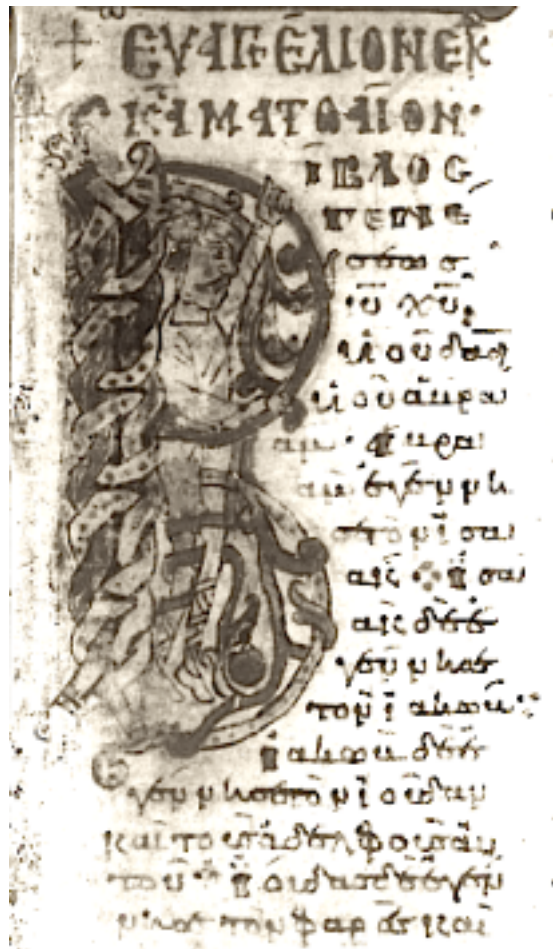 + ΕΥΑΓΓΕΛΙΟΝ ΕΚ
ΚΑ ΜΑΤΘΑΙΟΝ·
ΒΙΒΛΟϹ
ΓΕΝΕ
σεως
ιυ χυ
υιου δαδ
υιου αβρα
αμ· αβρα
αμ εγεννη
σε τον ισα
ακ · ισα
ακ δε ε
γεννησε
τον ιακωβ·
ιακωβ δε ε
γεννησε τον ιουδαν
και τους αδελφους αυ
του· ιουδας δε εγεν
νησε τον φαρες και